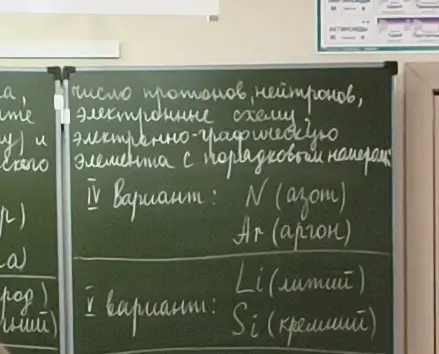 а,
ите
у) и
ского
р)
а)
род)
ний)
число протонов, нейтронов,
электронные схему,
электронно-графическую
элемента с порядковым номером
IV Вариант: N (азот)
Ar (аргон)
V вариант: Li (литий)
Si (кремний)
АКТИНОИДЫ